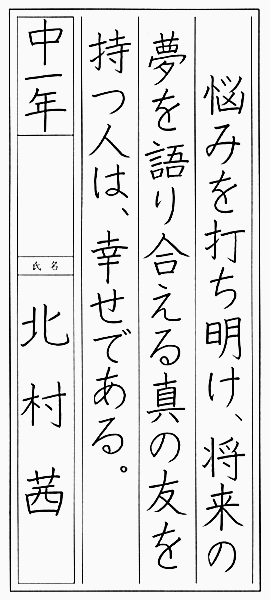 悩みを打ち明け、将来の
夢を語り合える真の友を
持つ人は、幸せである。
中一年
氏名
北村茜